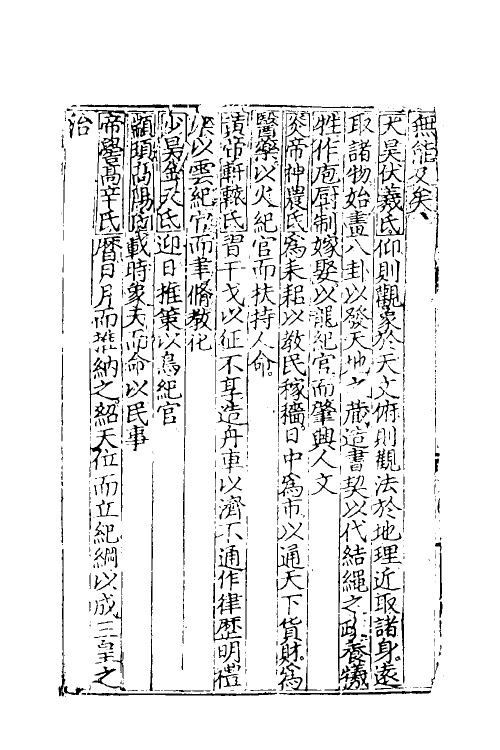 無能又矣
太昊伏羲氏仰則觀象於天文俯則觀法於地理近取諸身遠
取諸物始畫八卦以發天地之藏造書契以代結繩之政養犧
牲作庖厨制嫁娶以龍紀官而肇興人文
炎帝神農氏爲耒耜以教民稼穡日中爲市以通天下貨財爲
醫藥以火紀官而扶持人命
黄帝軒轅氏習干戈以征不享造舟車以濟不通作律歴明禮
樂以雲紀官而聿脩教化
少昊金天氏迎日推策以鳥紀官
顓頊高陽氏載時象天而命以民事
帝嚳高辛氏曆日月而推納之紹天位而立紀綱以成三皇之
治